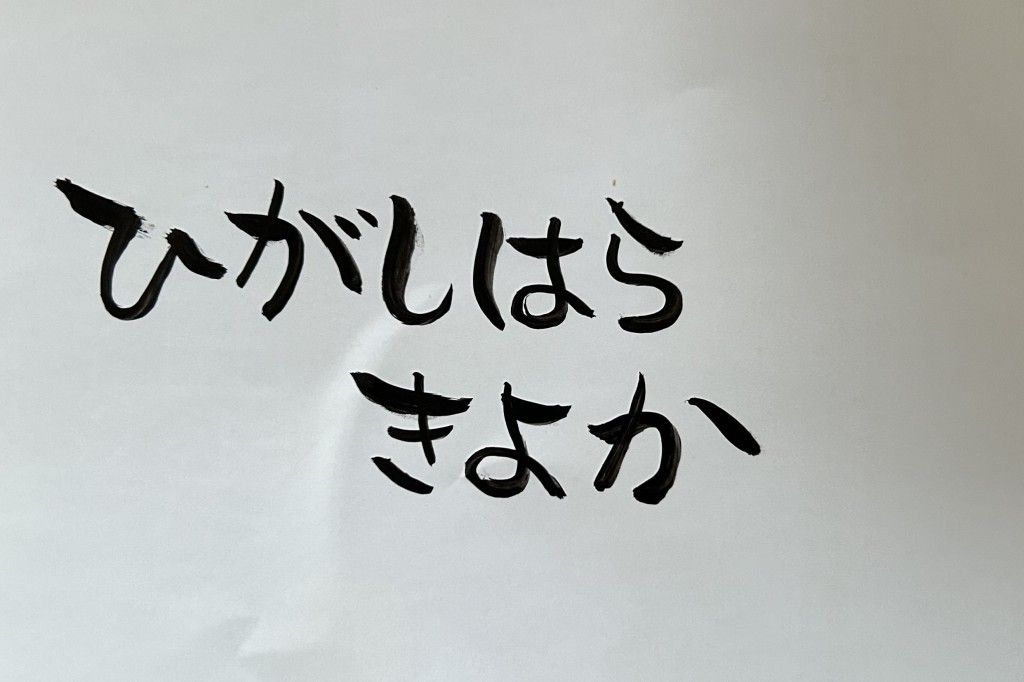 ひがしはら
きよか